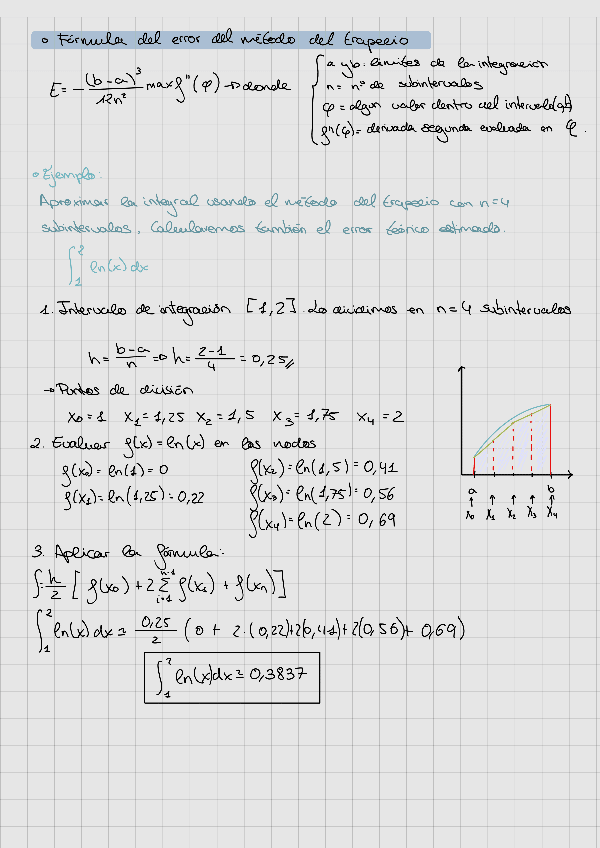 • Fórmula del error del método del trapecio
E = - (b-a)³ / 12n² max f''(φ) → donde
a y b: límites de la integración
n = nº de subintervalos
φ = algun valor dentro del intervalo (a,b)
f''(φ) = derivada segunda evaluada en φ.
• Ejemplo:
Aproximar la integral usando el método del trapecio con n=4
subintervalos, Calcularemos también el error teórico estimado.
∫₁² ln(x) dx
1. Intervalo de integración [1,2]. Lo dividimos en n=4 subintervalos
h = b-a / n => h = 2-1 / 4 = 0,25 //
→ Puntos de división
x₀ = 1 x₁ = 1,25 x₂ = 1,5 x₃ = 1,75 x₄ = 2
2. Evaluar f(x) = ln(x) en los nodos
f(x₀) = ln(1) = 0 f(x₂) = ln(1,5) = 0,41
f(x₁) = ln(1,25) = 0,22 f(x₃) = ln(1,75) = 0,56
f(x₄) = ln(2) = 0,69
a b
x₀ x₁ x₂ x₃ x₄
3. Aplicar la fórmula:
∫ = h/2 [ f(x₀) + 2 Σ_{i=1}^{n-1} f(x₁) + f(xₙ) ]
∫₁² ln(x) dx ≃ 0,25 / 2 ( 0 + 2·(0,22)+2(0,41)+2(0,56)+ 0,69)
∫₁² ln(x)dx ≃ 0,3837